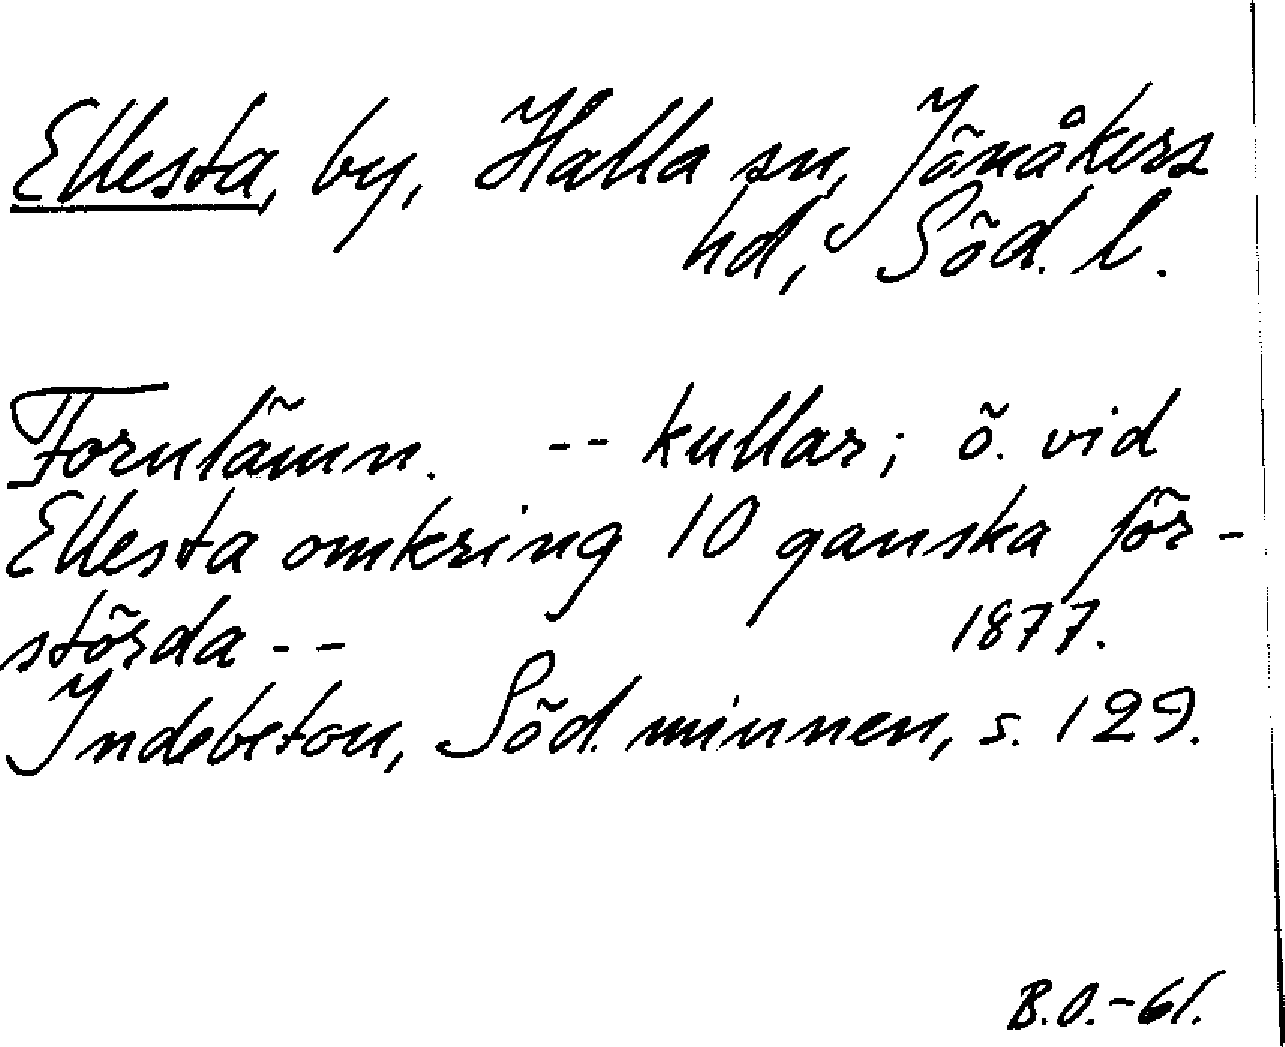 Ellesta, by, Halla sn, Jönåkers
hd, Söd. l.
Fornlämn. -- kullar; ö. vid
Ellesta omkring 10 ganska för-
störda -- 1877.
Indebetou, Söd. minnen, s. 129.
B.O.-61.